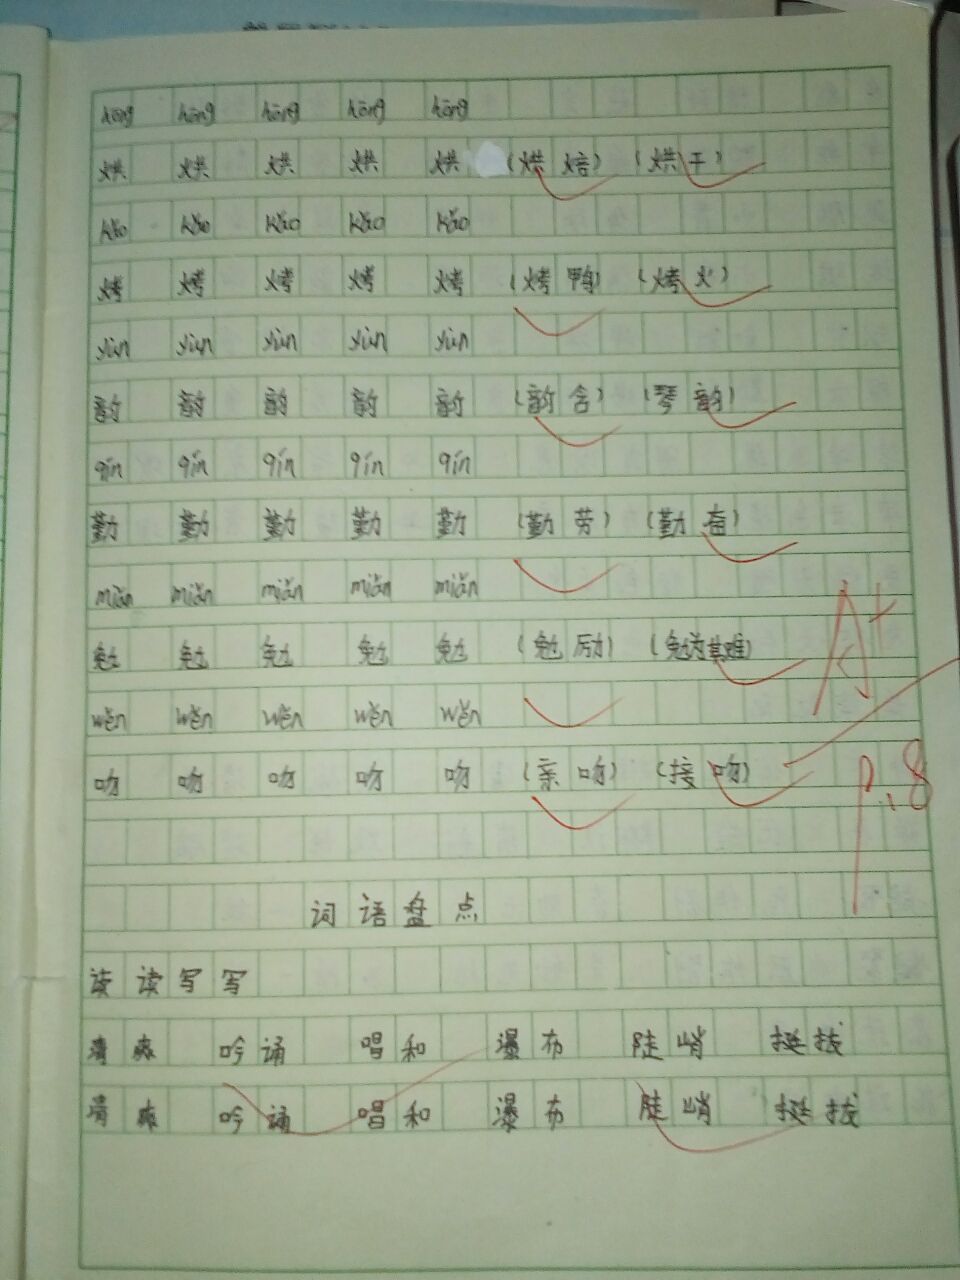 hōng hōng hōng hōng hōng
烘 烘 烘 烘 烘 (烘焙) (烘干)
kǎo kǎo kǎo kǎo kǎo
烤 烤 烤 烤 烤 (烤鸭) (烤火)
yùn yùn yùn yùn yùn
韵 韵 韵 韵 韵 (韵含) (琴韵)
qín qín qín qín qín
勤 勤 勤 勤 勤 (勤劳) (勤奋)
miǎn miǎn miǎn miǎn miǎn
勉 勉 勉 勉 勉 (勉励) (勉为其难)
wěn wěn wěn wěn wěn
吻 吻 吻 吻 吻 (亲吻) (接吻)
A+
P.8
词语盘点
读读写写
清爽 吟诵 唱和 瀑布 陡峭 挺拔
清爽 吟诵 唱和 瀑布 陡峭 挺拔